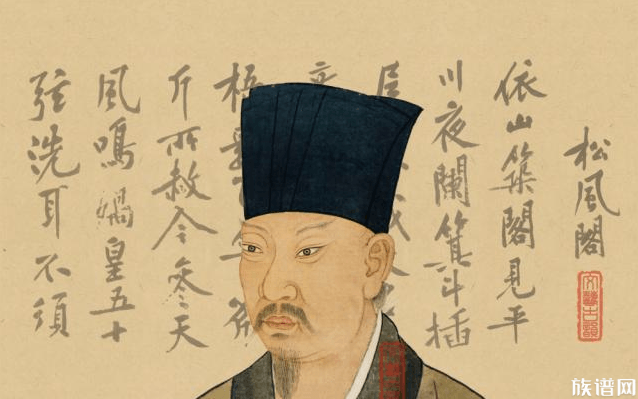 松風閣
依山築閣見平
川夜闌箕斗插
屋
梧
斤所赦今參天
風鳴媧皇五十
弦洗耳不須
族谱网